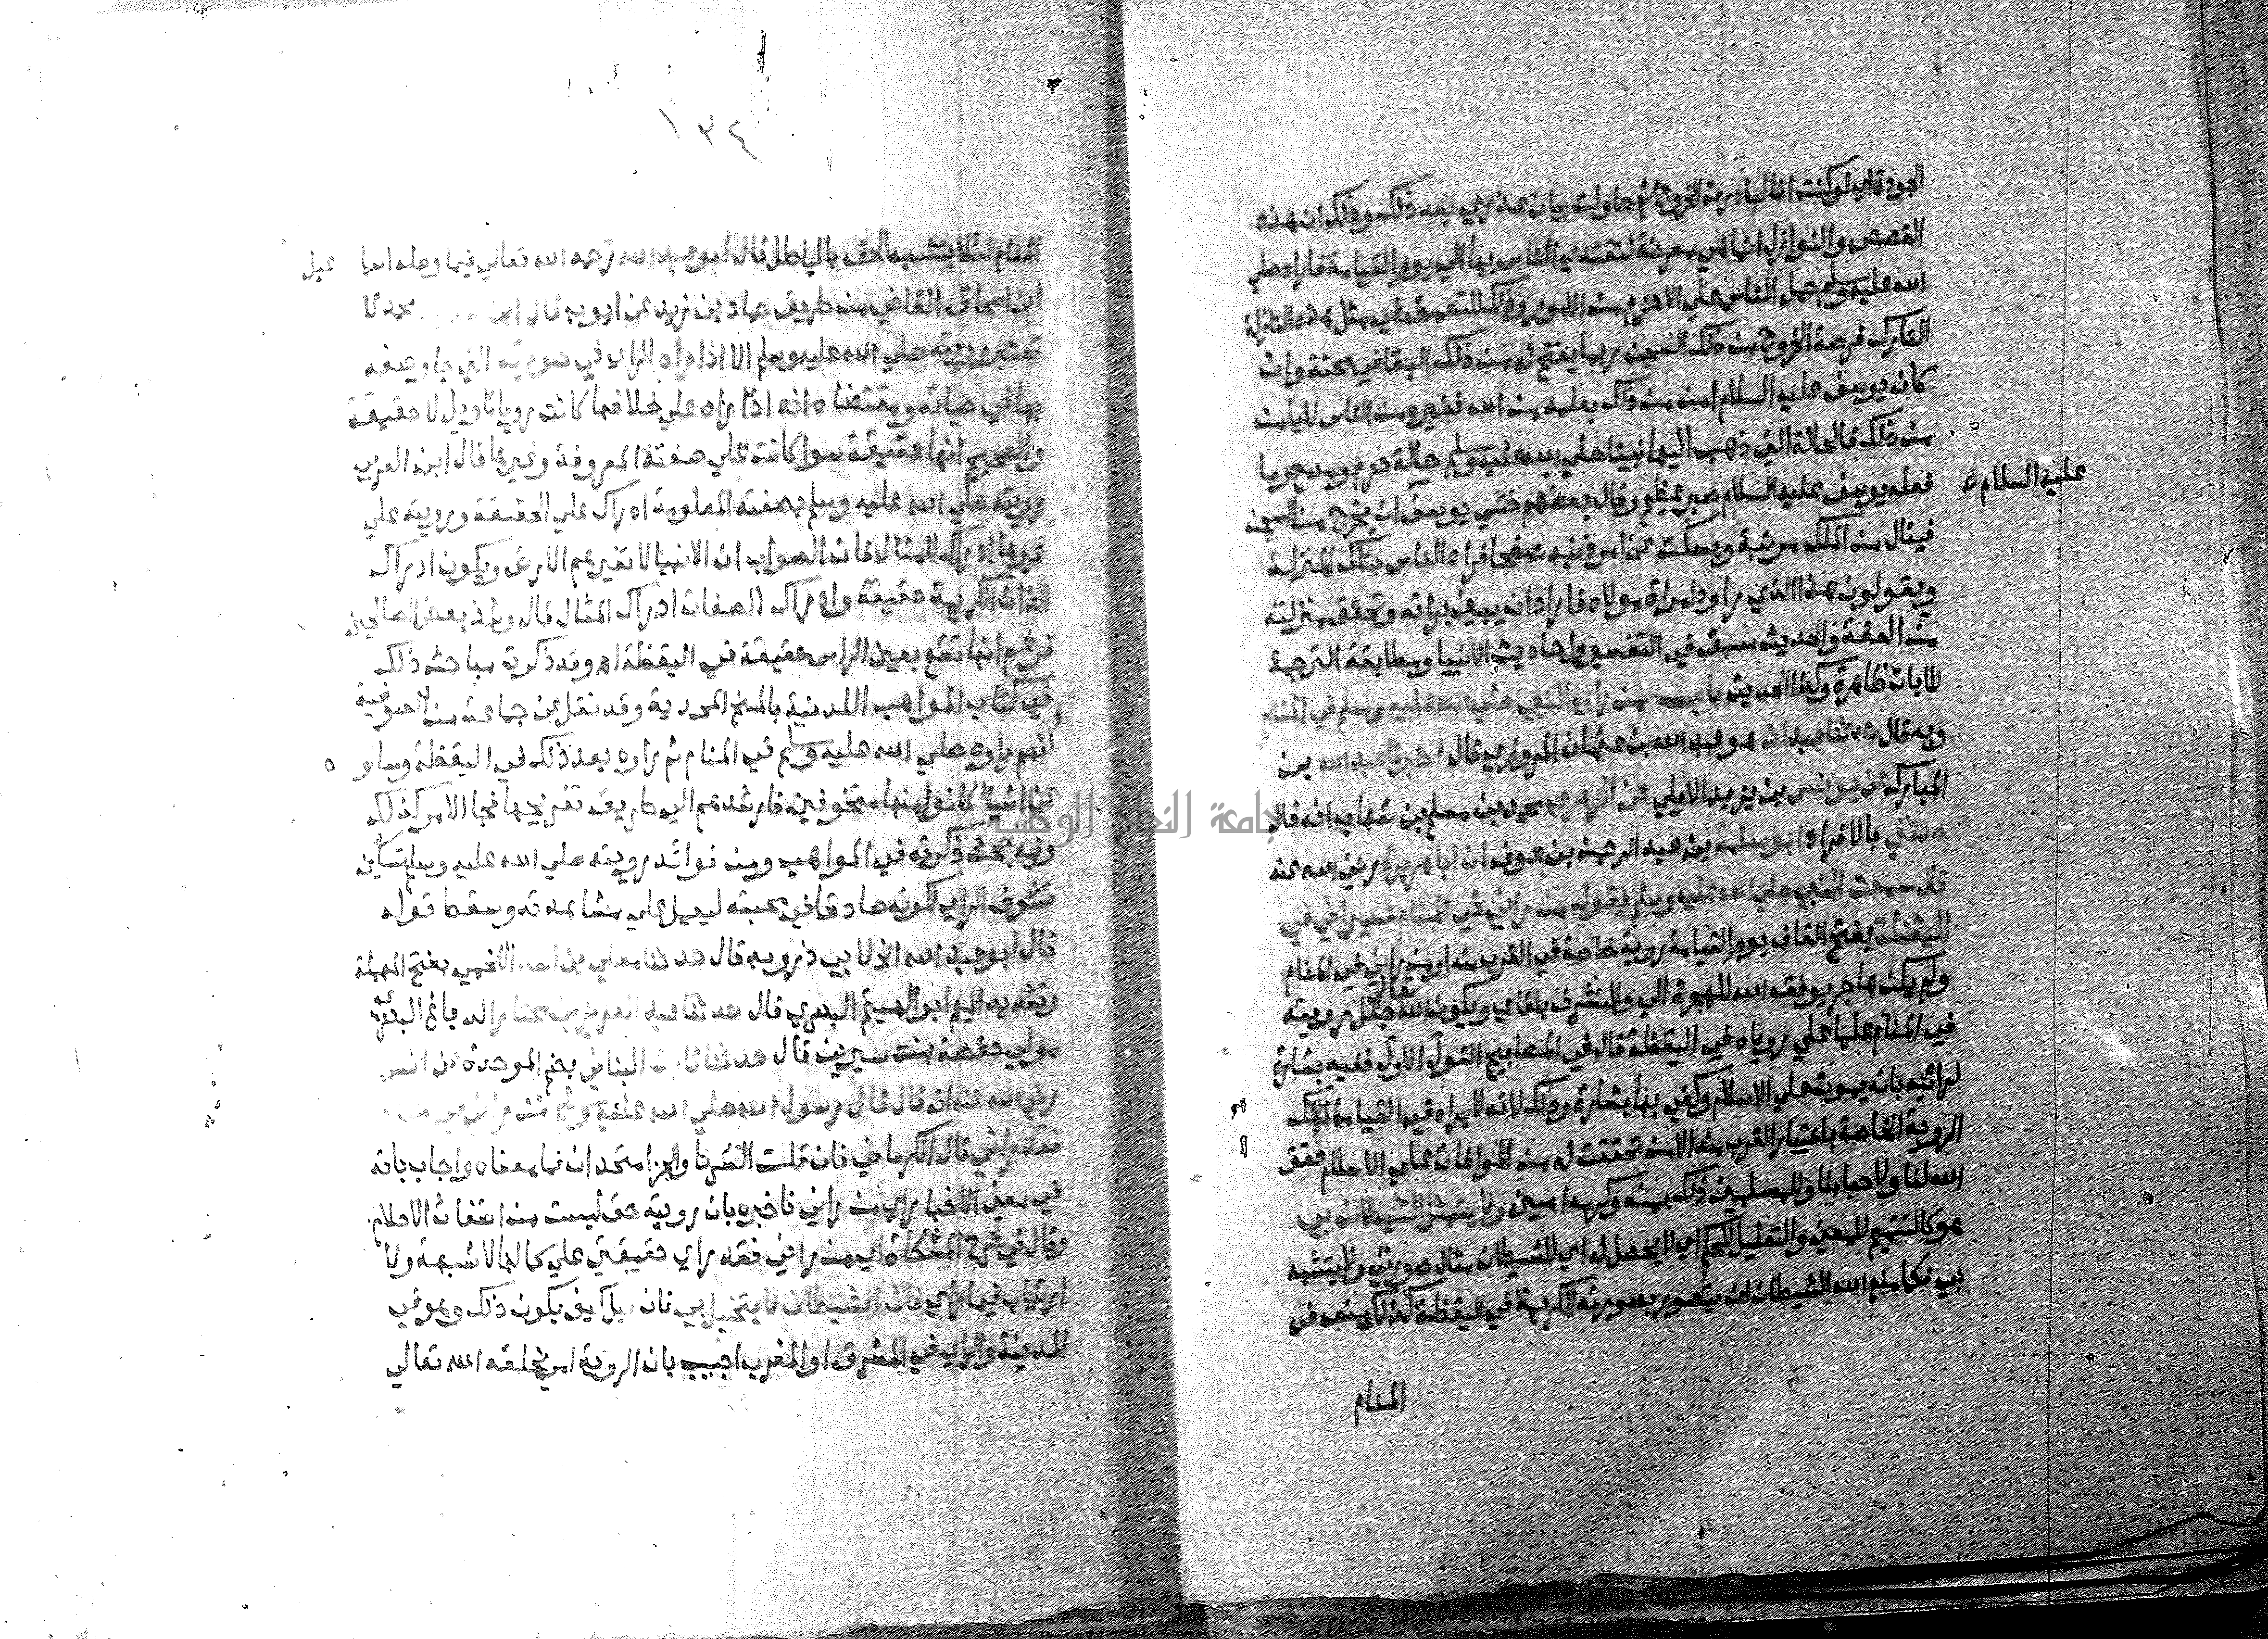 الجودة اي لو كنت انا لبادرت الخروج ثم حاولت بيان عذري بعد ذلك وذلك ان هذه
القصص والنوازل انما هي معرضة لتقتدي الناس بها الي يوم القيامة فاراد صلي
الله عليه وسلم حمل الناس علي الاحزم من الامور وذلك المتعمق في مثل هذه النازلة
التارك فرصة الخروج من ذلك السجن ربما يفتح له من ذلك البقا في سجنه وان
كان يوسف عليه السلام امن من ذلك بعلمه من الله فغيره من الناس لا يامن
من ذلك فالحالة التي ذهب اليها نبينا صلي الله عليه وسلم حالة حزم ومدح وما
فعله يوسف عليه السلام صبر عظيم وقال بعضهم خشي يوسف ان يخرج من السجن
عليه السلام
فينال من الملك مرتبة ويسكت عن امر ذنبه صفحا فراه الناس بتلك المنزلة
ويقولون هذا الذي راود امراة مولاه فاراد ان يبين براته وتحقق منزلته
من العفة والحديث سبق في التفسير واحاديث الانبيا ومطابقة الترجمة
للايات ظاهرة وكذا الحديث باب من راي النبي صلي الله عليه وسلم في المنام
وبه قال حدثنا عبدان هو عبد الله بن عثمان المروزي قال اخبرنا عبد الله بن
المبارك عن يونس بن يزيد الايلي عن الزهري محمد بن مسلم بن شهاب انه قال
حدثني بالافراد ابو سلمة بن عبد الرحمن بن عوف ان ابا هريرة رضي الله عنه
قال سمعت النبي صلي الله عليه وسلم يقول من راني في المنام فسيراني في
اليقظة بفتح القاف يوم القيامة روية خاصة في القرب منه او من راني في المنام
ولم يكن هاجر يوفقه الله للهجرة الي والتشرف بلقاي ويكون الله تعالي جعل رويته
في المنام علما علي روياه في اليقظة قال في المصابيح القول الاول ففيه بشارة
لرائيه بانه يموت علي الاسلام وكفي بها بشارة وذلك لانه لا يراه في القيامة تلك
الروية الخاصة باعتبار القرب منه الا من تحققت له من الوفاة علي الاسلام حقق
الله لنا ولاحبابنا وللمسلمين ذلك بمنه وكرمه امين ولا يتمثل الشيطان بي
هو كالتتميم للمعني والتعليل للحكم اي لا يحصل له اي للشيطان مثال صورتي ولا يتشبه
بي فكما منع الله الشيطان ان يتصور بصورته الكريمة في اليقظة كذلك منعه في
المنام
١٣٤
المنام لئلا يتشبه الحق بالباطل قال ابو عبد الله رحمه الله تعالي فيما وصله اسما عيل
ابن اسحاق القاضي من طريق حماد بن زيد عن ايوب قال ابن محمد لا
تعتبر رويته صلي الله عليه وسلم الا اذا راه الراي في صورته التي جا وصفه
بها في حياته ومقتضاه انه اذا راه علي خلافها كانت رويا تاويل لا حقيقة
والصحيح انها حقيقة سوا كانت علي صفته المعروفة وغيرها قال ابن العربي
رويته صلي الله عليه وسلم بصفته المعلومة ادراك علي الحقيقة ورويته علي
غيرها ادراك للمثال فان الصواب ان الانبيا لا تغيرهم الارض ويكون ادراك
الذات الكريمة حقيقة وادراك الصفات ادراك المثال قال وشذ بعض الصالحين
فزعم انها تقع بعين الراس حقيقة في اليقظة اه وقد ذكرت مباحث ذلك
في كتاب المواهب اللدنية بالمنح المحمدية وقد نقل عن جماعة من الصوفية
انهم راوه صلي الله عليه وسلم في المنام ثم راوه بعد ذلك في اليقظة وسالو ه
عن اشيا كانوا منها متخوفين فارشدهم الي طريق تفريجها فجا الامر كذلك
وفيه بحث ذكرته في المواهب ومن فوائد رويته صلي الله عليه وسلم تسكين
تشوف الراي لكونه صادقا في محبته ليعمل علي مشاهدته وسقط قوله
قال ابو عبد الله الخ لابي ذر وبه قال حدثنا معلي بن اسد العمي بفتح المهملة
وتشديد الميم ابو الهيثم البصري قال حدثنا عبد العزيز بن مختار الدباغ البصري
مولي حفصة بنت سيرين قال حدثنا ثابت البناني بضم الموحدة عن انس
رضي الله عنه انه قال قال رسول الله صلي الله عليه وسلم من راني
فقد راني قال الكرماني فان قلت الشرط والجزا متحدان فما معناه واجاب بانه
في معني الاخبار اي من راني فاخبره بان رويته حق ليست من اضغاث الاحلام
وقال في شرح المشكاة اي من راني فقد راي حقيقتي علي كمالها لا شبهة ولا
ارتياب فيما راي فان الشيطان لا يتخيل بي فان قيل كيف يكون ذلك وهو في
المدينة والراي في المشرق او المغرب اجيب بان الروية امر يخلقه الله تعالي
جامعة النجاح الوطنية